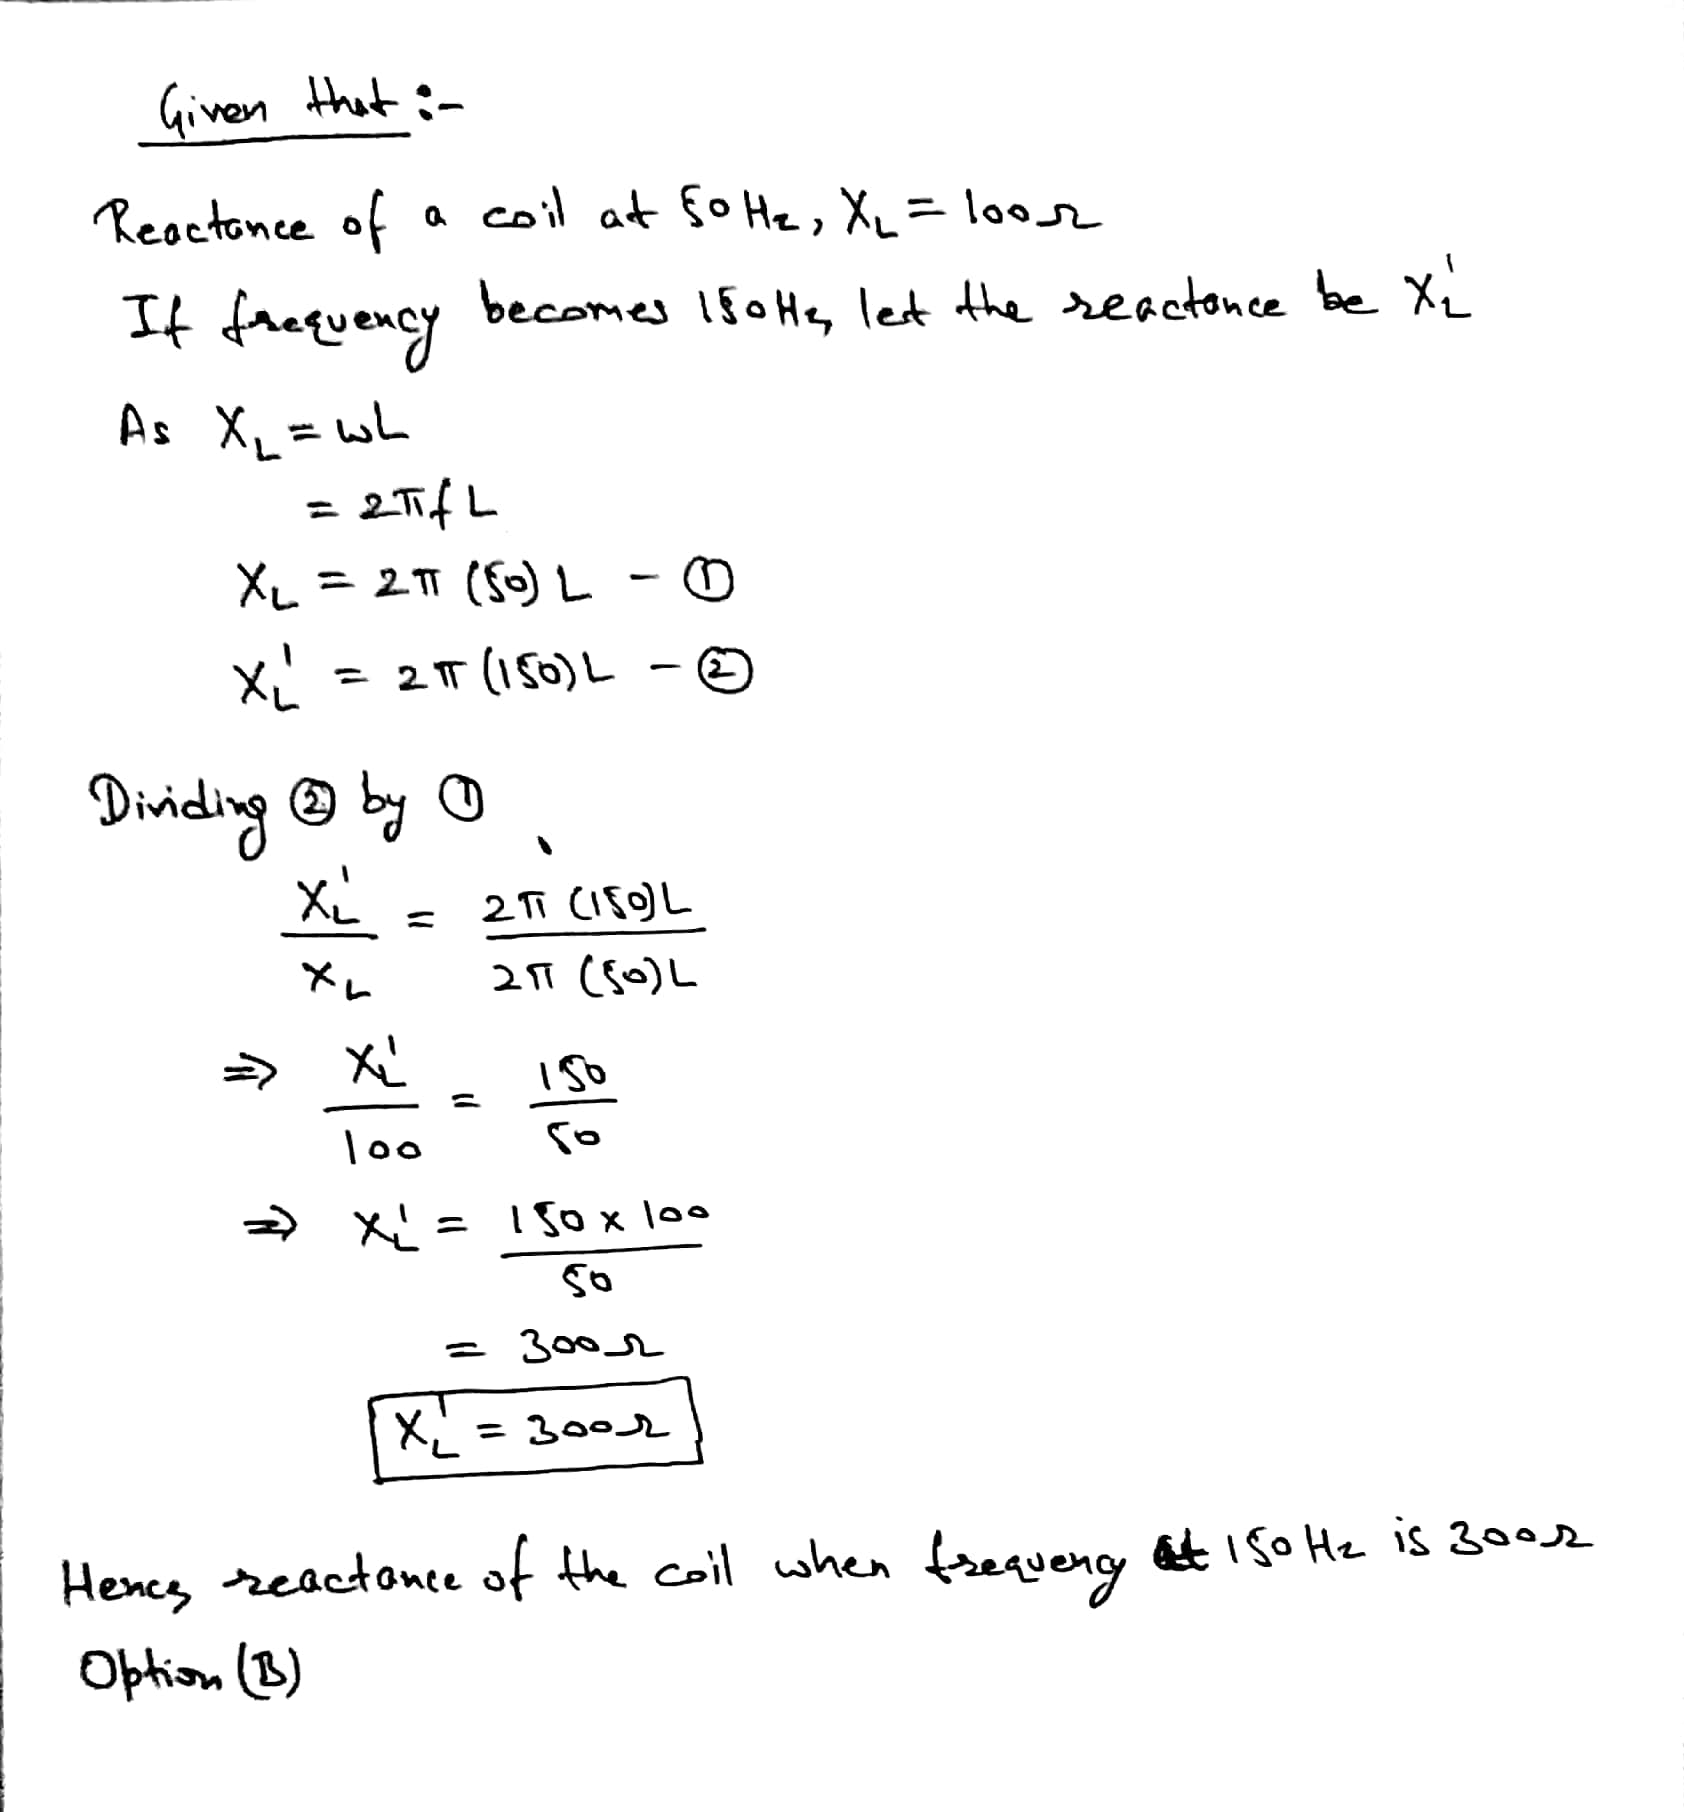 Given that :-
Reactance of a coil at 50 Hz, X_L = 100Ω
If frequency becomes 150Hz, let the reactance be X_L'
As X_L = ωL
= 2πfL
X_L = 2π (50) L - ①
X_L' = 2π (150) L - ②
Dividing ② by ①
X_L' / X_L = 2π (150) L / 2π (50) L
⇒ X_L' / 100 = 150 / 50
⇒ X_L' = 150 x 100 / 50
= 300Ω
X_L' = 300Ω
Hence, reactance of the coil when frequency at 150 Hz is 300Ω
Option (B)